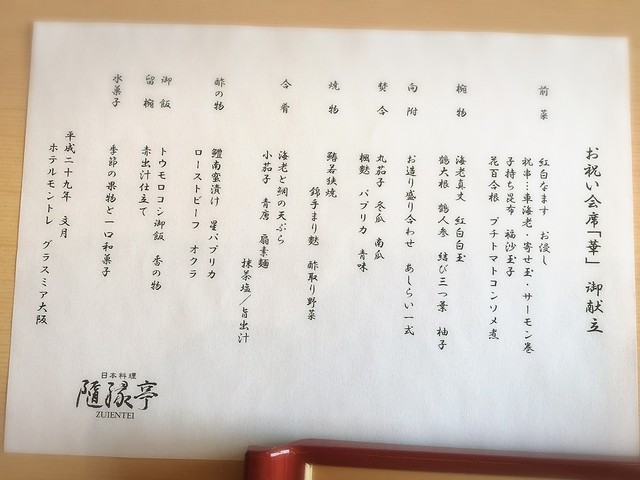 お祝い会席「華」 御献立
前菜
紅白なます お浸し
祝串…車海老・寄せ玉・サーモン巻
子持ち昆布 福沙玉子
花百合根 プチトマトコンソメ煮
椀物
海老真丈 紅白白玉
鶴大根 鶴人参 結び三つ葉 柚子
向附
お造り盛り合わせ あしらい一式
焚合
丸茄子 冬瓜 南瓜
楓麩 パプリカ 青味
焼物
鰆若狭焼
錦手まり麩 酢取り野菜
合肴
海老と鯛の天ぷら
小茄子 青唐 扇素麺
抹茶塩/旨出汁
酢の物
鱧南蛮漬け 星パプリカ
ローストビーフ オクラ
御飯
トウモロコシ御飯 香の物
留椀
赤出汁仕立て
水菓子
季節の果物と一口和菓子
平成二十九年 文月
ホテルモントレ グラスミア大阪
日本料理
隨縁亭
ZUIENTEI